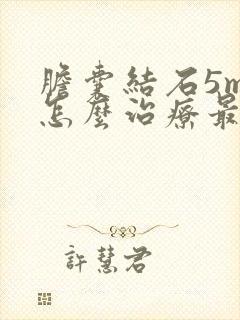 膽囊結石5m
怎麼治療最
許慧君